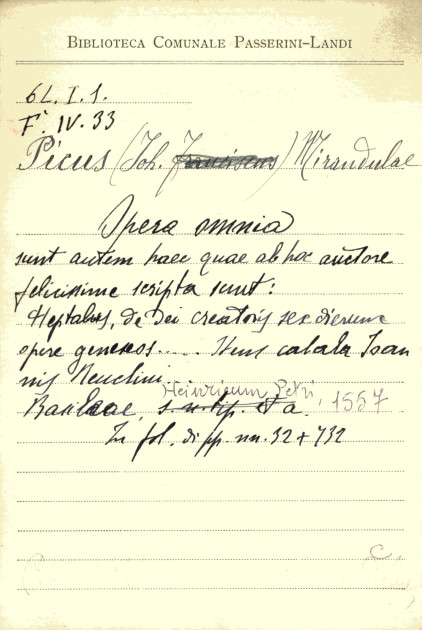 BIBLIOTECA COMUNALE PASSERINI-LANDI
6L. I. 1.
F. IV. 33
Picus (Joh. Franciscus) Mirandulae
Opera omnia
sunt autem haec quae ab hoc auctore
felicissime scripta sunt:
Heptalus, de Dei creatoris sex dierum
opere geneseos..... Item cabala Joan
nis Reuclini.
Heinricum Petri, 1557
Basileae, s. n. tip. et a.
In fol. di pp. nn. 32 + 732
C.